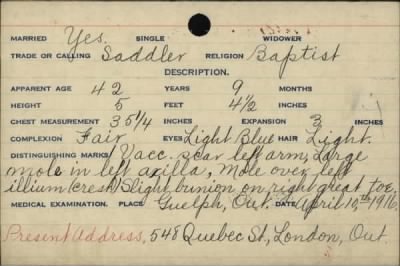 MARRIED Yes. SINGLE WIDOWER
TRADE OR CALLING Saddler RELIGION Baptist
DESCRIPTION.
APPARENT AGE 42 YEARS 9 MONTHS
HEIGHT 5 FEET 4 1/2 INCHES
CHEST MEASUREMENT 35 1/4 INCHES EXPANSION 3 INCHES
COMPLEXION Fair EYES Light Blue HAIR Light.
DISTINGUISHING MARKS Vacc. scar left arm, Large
mole in left axilla, Mole over left
illium (crest) Slight bunion on right great toe.
MEDICAL EXAMINATION. PLACE Guelph, Ont. DATE April 10th, 1916
Present Address, 548 Quebec St., London, Ont.